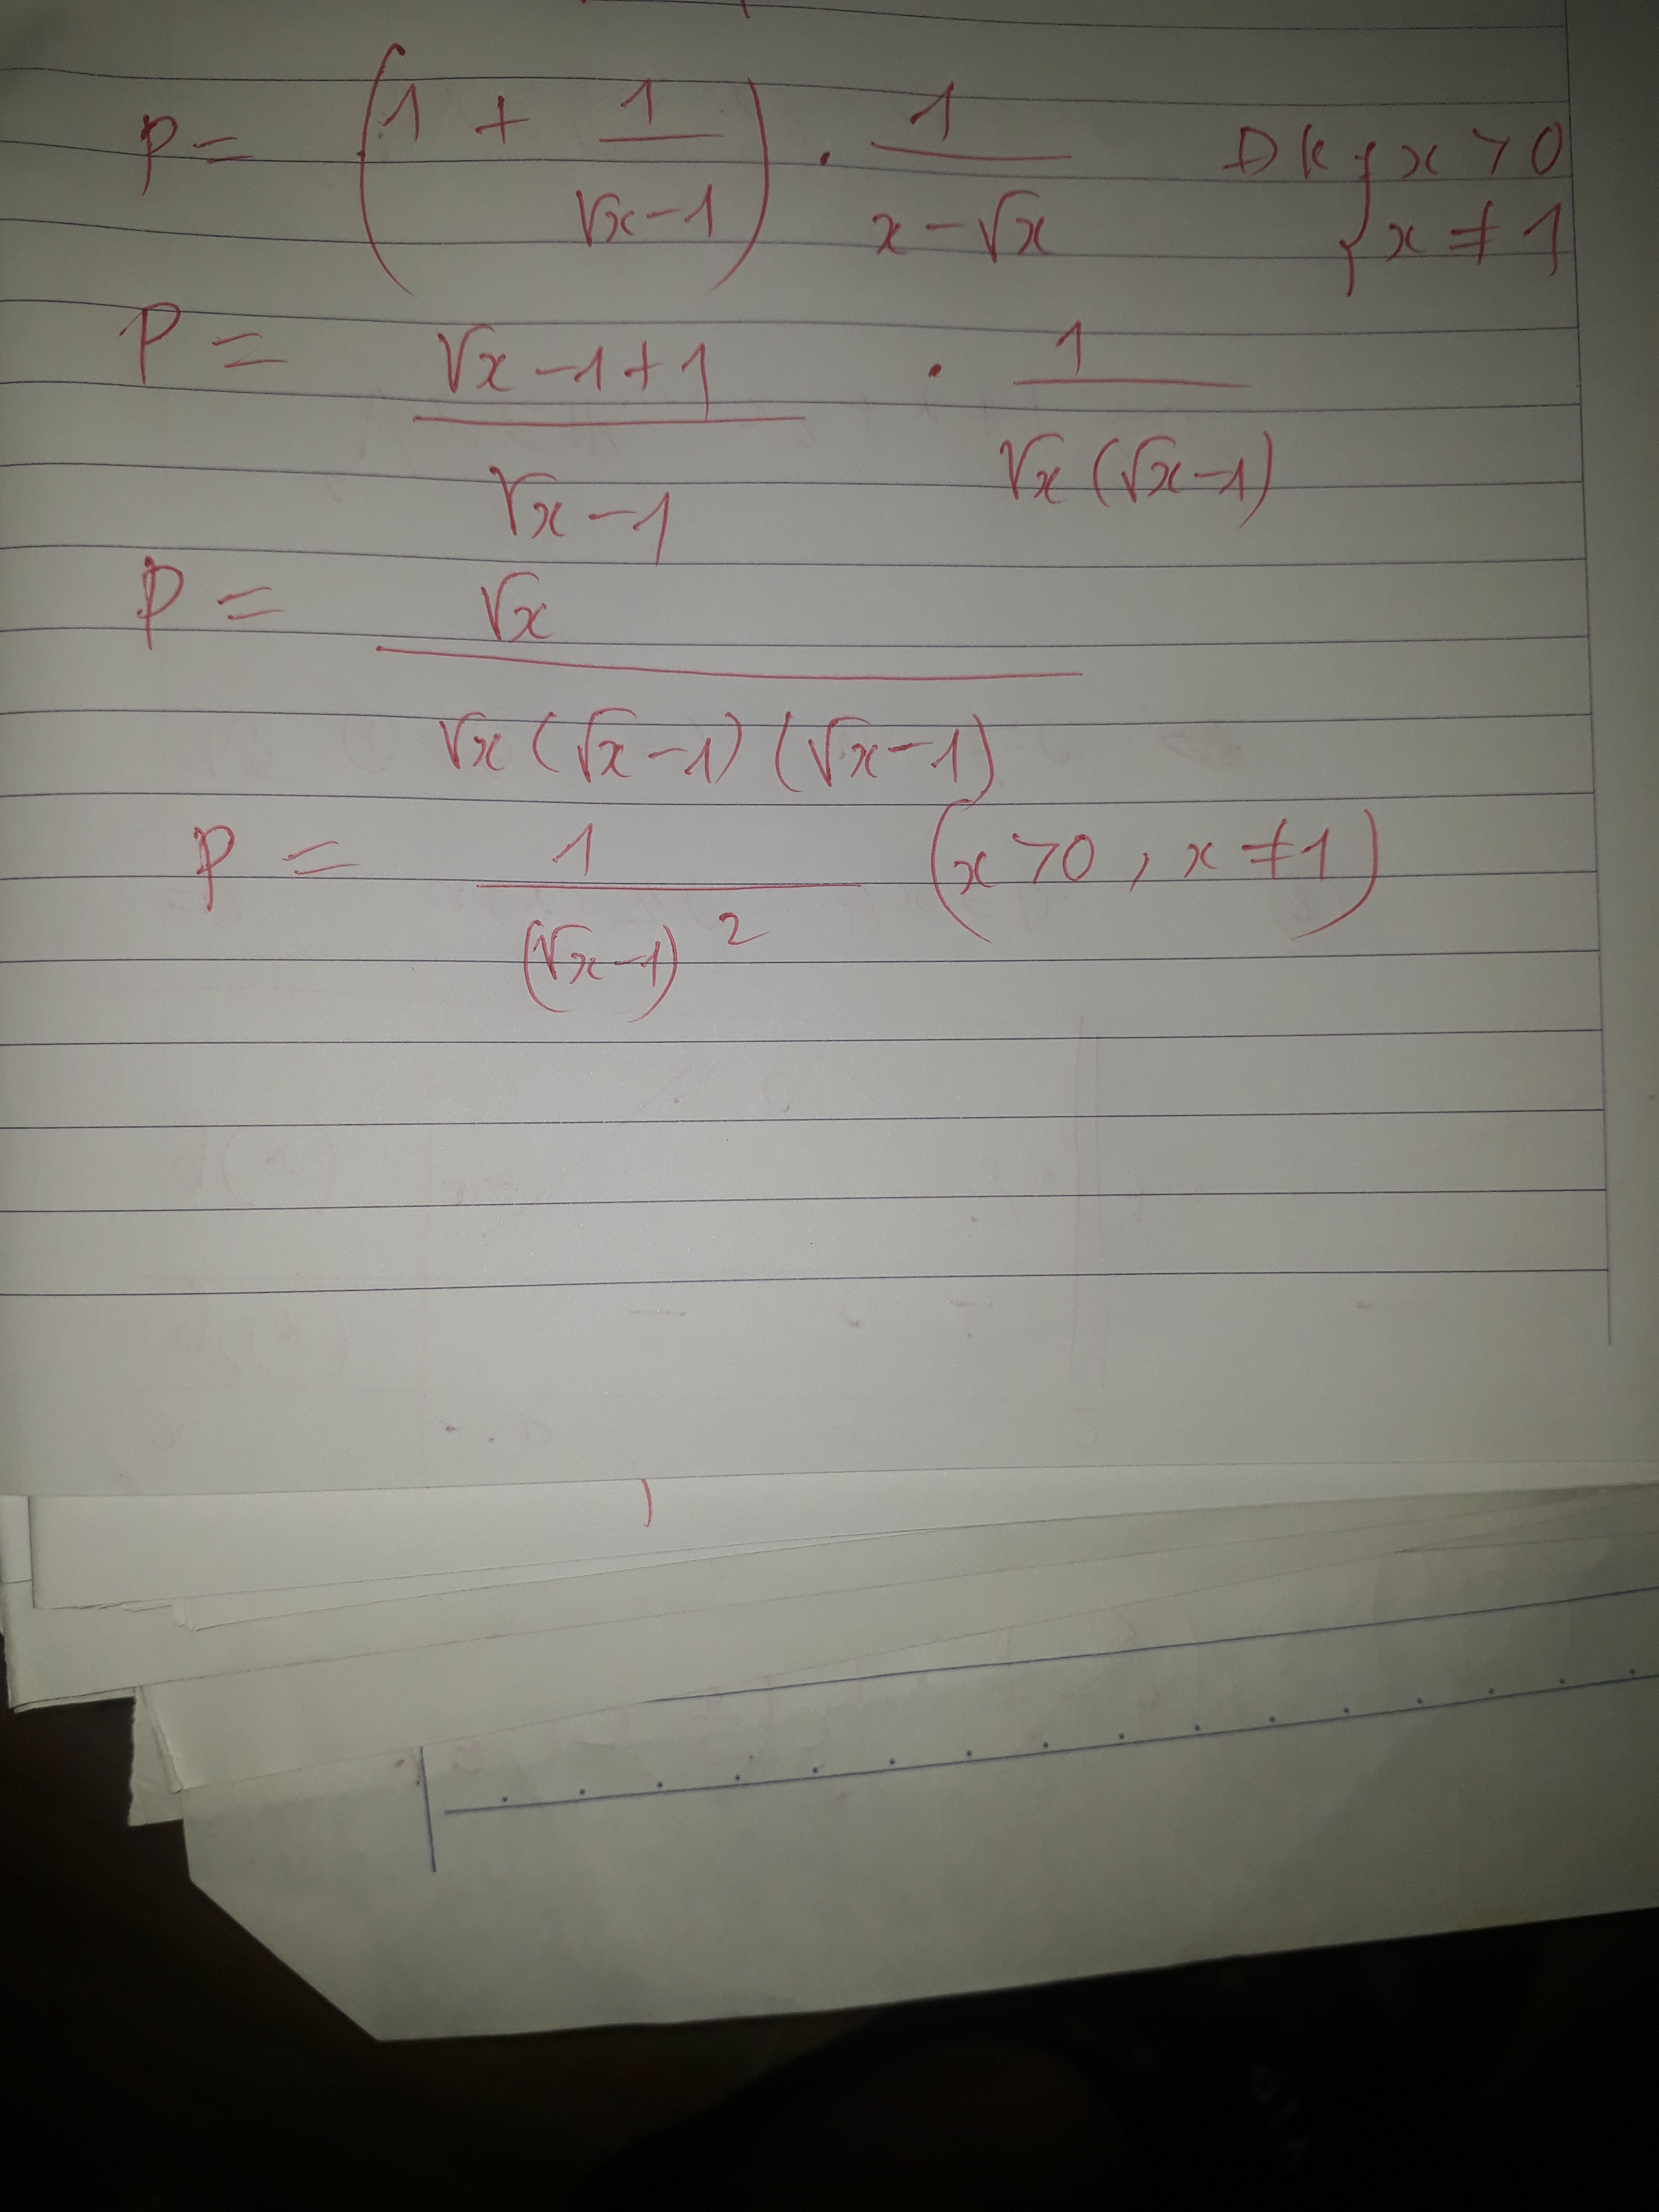 P = (1 + 1/(√x-1)) . 1/(x-√x) Dk { x > 0
{ x ≠ 1
P = (√x-1+1)/(√x-1) . 1/(√x(√x-1))
P = √x/(√x(√x-1)(√x-1))
P = 1/(√x-1)² (x > 0, x ≠ 1)